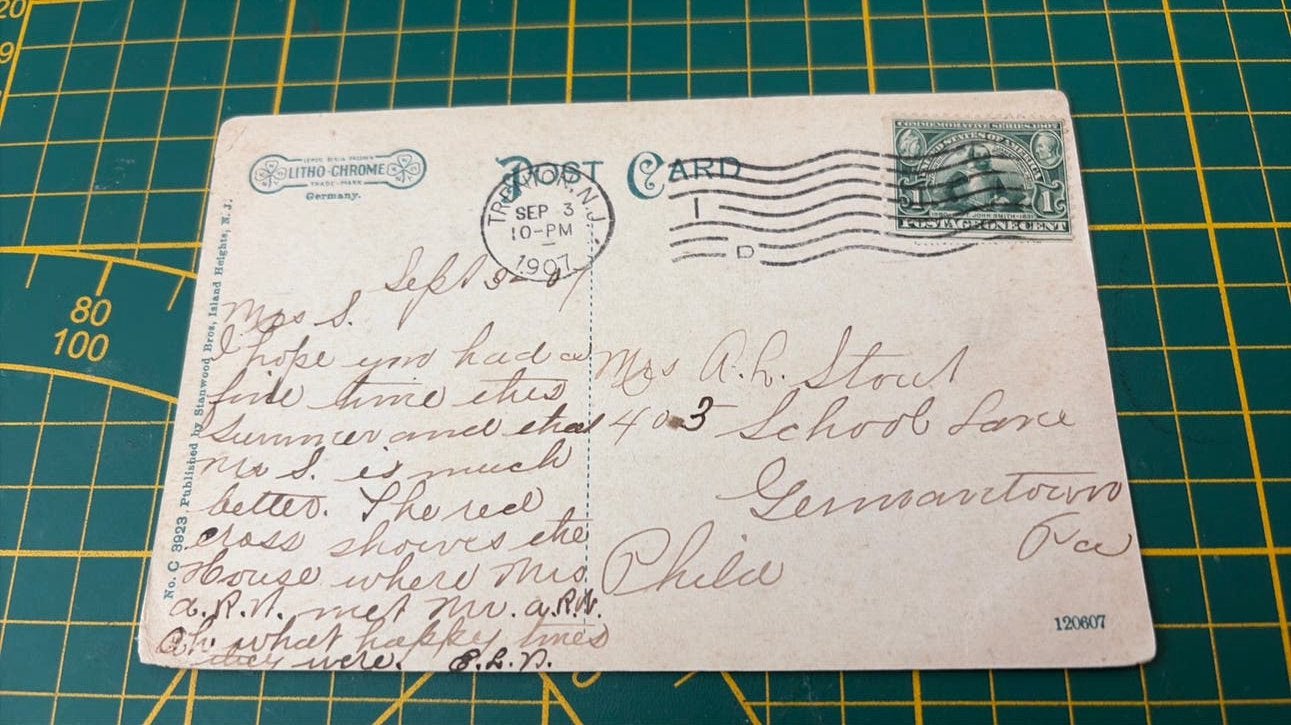 20
9
80
100
LITHO-CHROME
TRADE-MARK
Germany.
POST CARD
TRENTON, N.J.
SEP 3
10-PM
1907
1
D
COMMEMORATIVE SERIES 1907
UNITED STATES OF AMERICA
1 1
JOHN SMITH
POSTAGE ONE CENT
No. C 3923 Published by Stanwood Bros, Island Heights, N. J.
Sept 3-07
Mrs S.
I hope you had a
fine time this
Summer and that
Mr S. is much
better. The red
cross shows the
House where Mrs
a.R.N. met Mr. a.R.N.
Oh what happy times
they were. E.L.N.
Mrs A. L. Stout
403 School Lane
Germantown
Phila Pa
120607